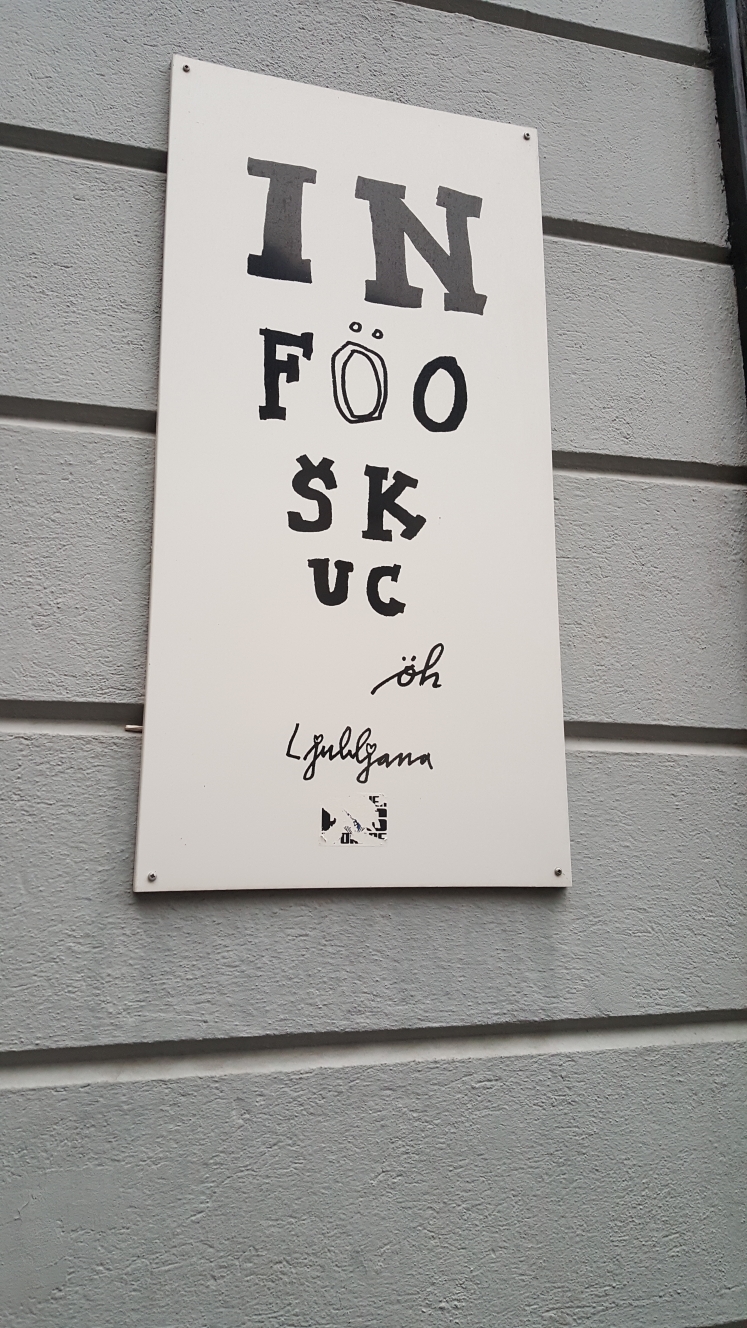 IN
FÖO
ŠK
UC
öh
Ljubljana